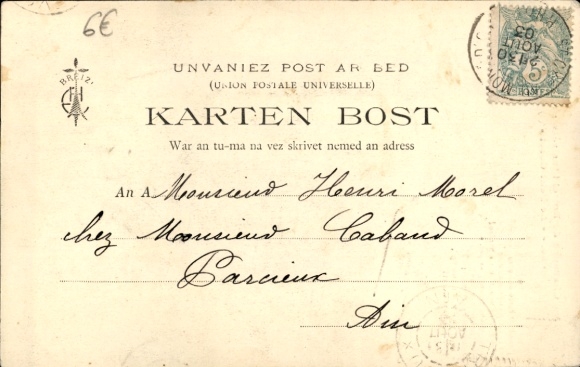 6€
BREIZ
UNVANIEZ POST AR BED
(UNION POSTALE UNIVERSELLE)
KARTEN BOST
War an tu-ma na vez skrivet nemed an adress
An A Monsieud Henri Morel
chez Monsieud Caband
Parcieux
Ain
30
AOUT
03